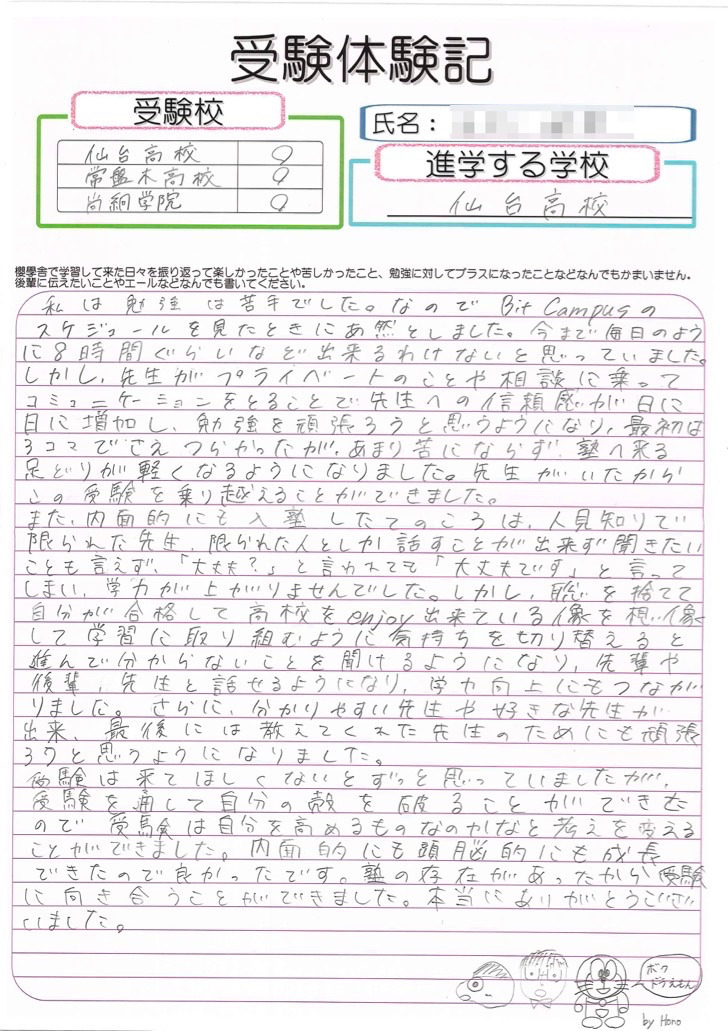 受験体験記
受験校
氏名：
仙台高校 ○
常盤木高校 ○
尚絅学院 ○
進学する学校
仙台高校
櫻學舎で学習して来た日々を振り返って楽しかったことや苦しかったこと、勉強に対してプラスになったことなどなんでもかまいません。
後輩に伝えたいことやエールなどなんでも書いてください。
私は勉強は苦手でした。なので Bit Campusの
スケジュールを見たときにあ然としました。今まで毎日のよう
に8時間ぐらいなど出来るわけないと思っていました。
しかし、先生がプライベートのことや相談に乗って
コミュニケーションをとることで先生への信頼感が日に
日に増加し、勉強を頑張ろうと思うようになり、最初は
3コマでさえつらかったが、あまり苦にならず、塾へ来る
足どりが軽くなるようになりました。先生がいたから
この受験を乗り越えることができました。
また、内面的にも入塾したてのころは、人見知りで
限られた先生、限られた人としか話すことが出来ず聞きたい
ことも言えず、「大丈夫?」と言われても「大丈夫です」と言って
しまい、学力が上がりませんでした。しかし、恥を捨てて
自分が合格して高校をenjoy出来ている像を想像
して学習に取り組むように気持ちを切り替えると
進んで分からないことを聞けるようになり、先輩や
後輩、先生と話せるようになり、学力向上にもつなが
りました。さらに、分かりやすい先生や好きな先生が
出来、最後には教えてくれた先生のためにも頑張
ろうと思うようになりました。
受験は来てほしくないとずっと思っていましたが、
受験を通して自分の殻を破ることができた
ので受験は自分を高めるものなのかなと考えを変える
ことができました。内面的にも頭脳的にも成長
できたので良かったです。塾の存在があったから受験
に向き合うことができました。本当にありがとうござ
いました。
ボク
ドラえもん
by Hono